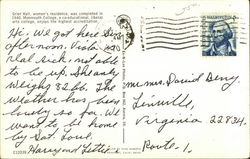 Grier Hall, women's residence, was completed in
1940. Monmouth College, a co-educational, liberal
arts college, enjoys the highest accreditation.
Hi, we got here Sun.
afternoon. Viola is
real sick, not able
to be up. She only
weighs 82 lb. The
weather has been
lousy so far. We
want to be home
by Sat.
Harry and Lettie
Mr. Mrs. David Berry
Linville,
Virginia 22834.
Route 1,